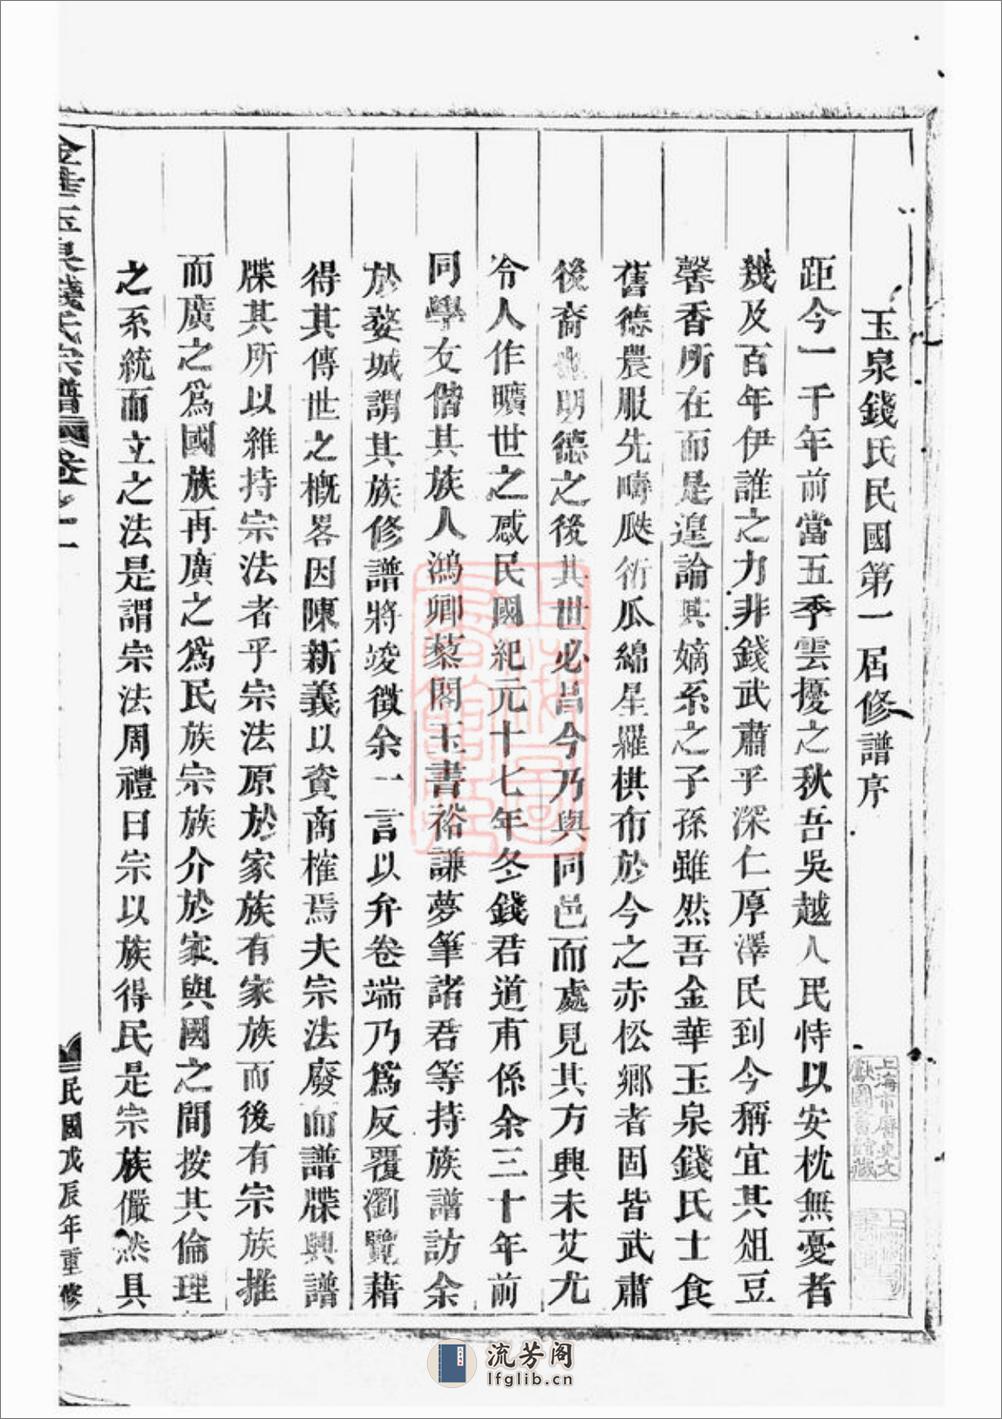 玉泉錢氏民國第一屆修譜序
距今一千年前當五季雲擾之秋吾吳越人民恃以安枕無憂者
幾及百年伊誰之力非錢武肅乎深仁厚澤民到今稱宜其俎豆
馨香所在而是遑論其嫡系之子孫雖然吾金華玉泉錢氏士食
舊德農服先疇瓞衍瓜綿星羅棋布於今之赤松鄉者固皆武肅
後裔也明德之後其世必昌今乃與同邑而處見其方興未艾尤
令人作曠世之感民國紀元十七年冬錢君道甫係余三十年前
同學友偕其族人鴻卿蔡閣玉書裕謙夢筆諸君等持族譜訪余
於婺城謂其族修譜將竣徵余一言以弁卷端乃為反覆瀏覽藉
得其傳世之概畧因陳新義以資商榷焉夫宗法廢而譜牒興譜
牒其所以維持宗法者乎宗法原於家族有家族而後有宗族推
而廣之爲國族再廣之爲民族宗族介於家與國之間按其倫理
之系統而立之法是謂宗法周禮曰宗以族得民是宗族儼然具
金華玉泉錢氏宗譜 卷之一
民國戊辰年重修
上海市歷史文獻圖書館藏
流芳阁
lfglib.cn